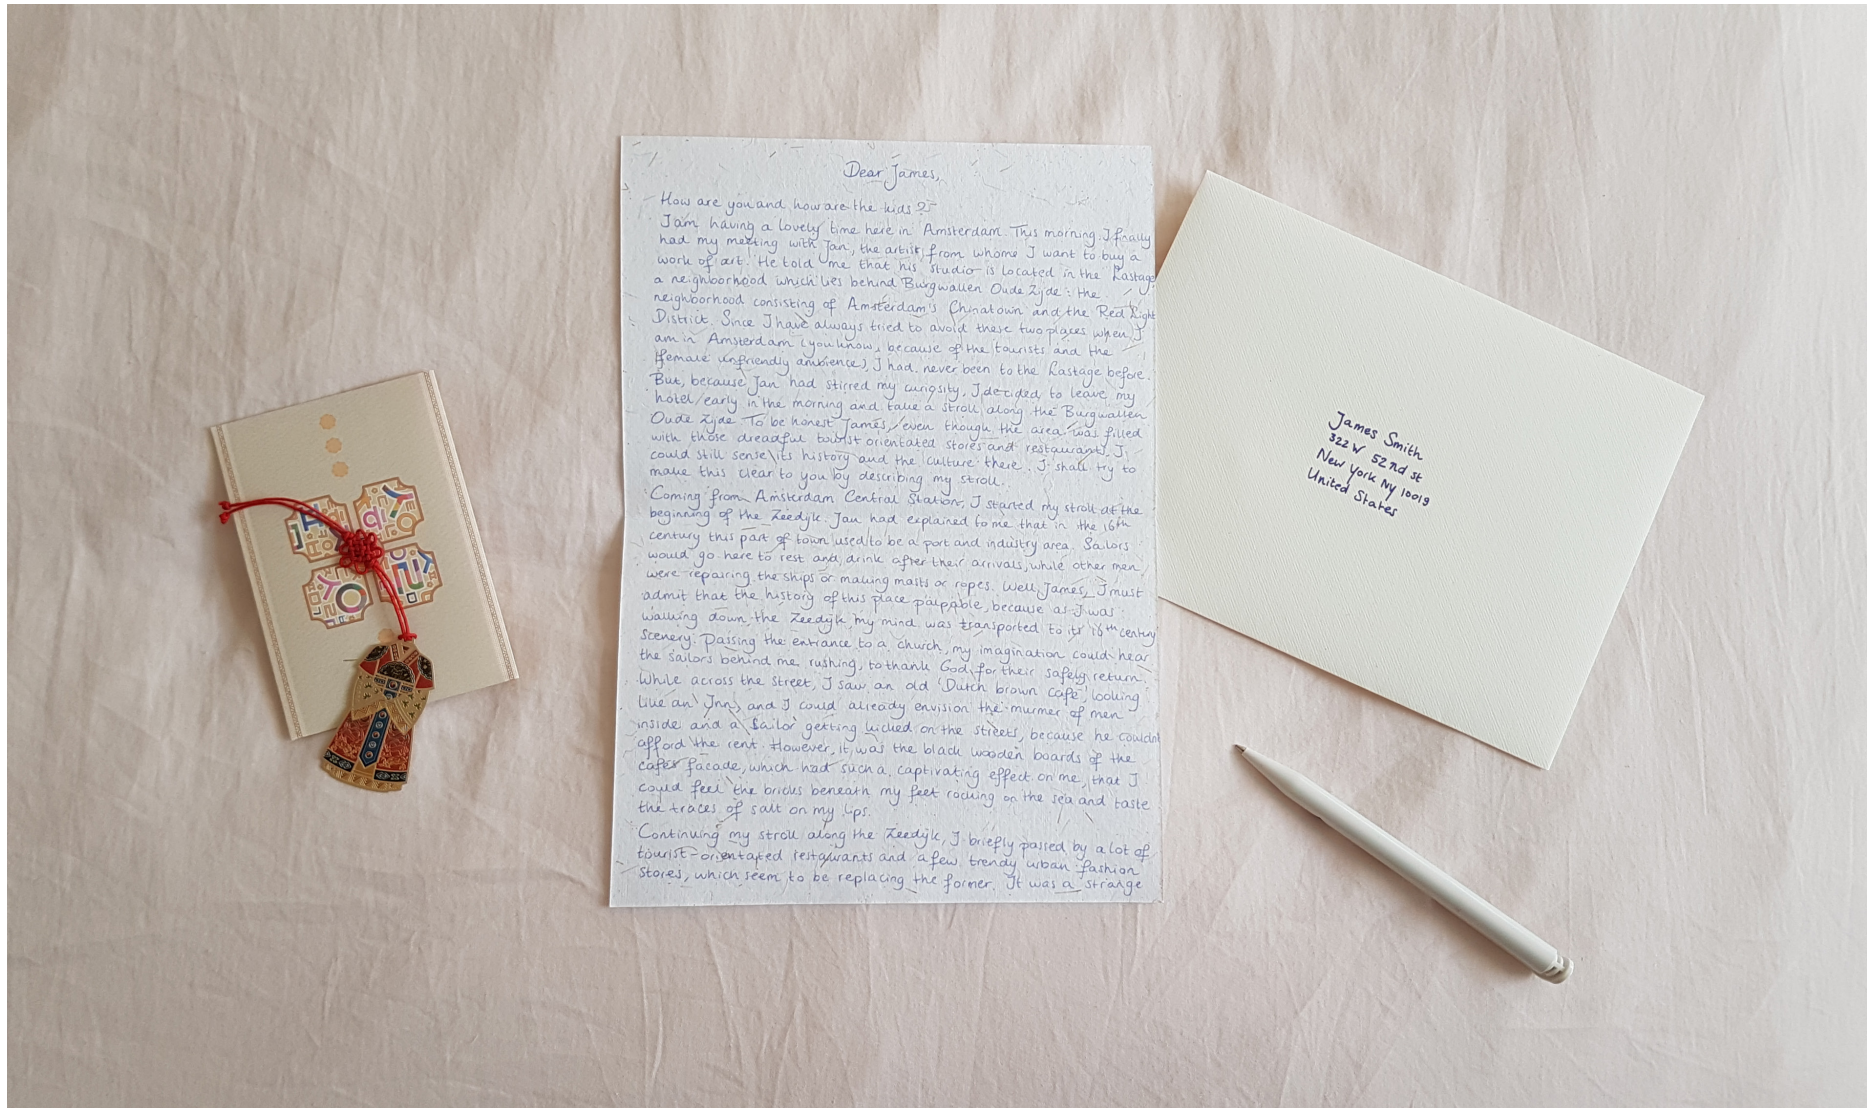 Dear James,
How are you and how are the kids?
I am having a lovely time here in Amsterdam. This morning I finally
had my meeting with Jan, the artist, from whome I want to buy a
work of art. He told me that his studio is located in the Lastage
a neighborhood which lies behind Burgwallen Oude Zijde: the
neighborhood consisting of Amsterdam's Chinatown and the Red Light
District. Since I have always tried to avoid these two places when I
am in Amsterdam (you know, because of the tourists and the
female unfriendly ambience), I had never been to the Lastage before.
But, because Jan had stirred my curiosity, I decided to leave my
hotel early in the morning and take a stroll along the Burgwallen
Oude Zijde. To be honest James, even though the area was filled
with those dreadful tourist orientated stores and restaurants, I
could still sense its history and the culture there. I shall try to
make this clear to you by describing my stroll.
Coming from Amsterdam Central Station, I started my stroll at the
beginning of the Zeedijk. Jan had explained to me that in the 16th
century this part of town used to be a port and industry area. Sailors
would go here to rest and drink after their arrivals, while other men
were repairing the ships or making masts or ropes. Well James, I must
admit that the history of this place palpable, because as I was
walking down the Zeedijk, my mind was transported to its 16th century
scenery. Passing the entrance to a church, my imagination could hear
the sailors behind me rushing, to thank God for their safely return.
While across the street, I saw an old 'Dutch brown café', looking
like an Inn, and I could already envision the murmer of men
inside and a sailor getting kicked on the streets, because he couldn't
afford the rent. However, it was the black wooden boards of the
cafés facade, which had such a captivating effect on me, that I
could feel the bricks beneath my feet rocking on the sea and taste
the traces of salt on my lips.
Continuing my stroll along the Zeedijk, I briefly passed by a lot of
tourist-orientated restaurants and a few trendy urban fashion
stores, which seem to be replacing the former. It was a strange
James Smith
322 W 52nd st
New York NY 10019
United States